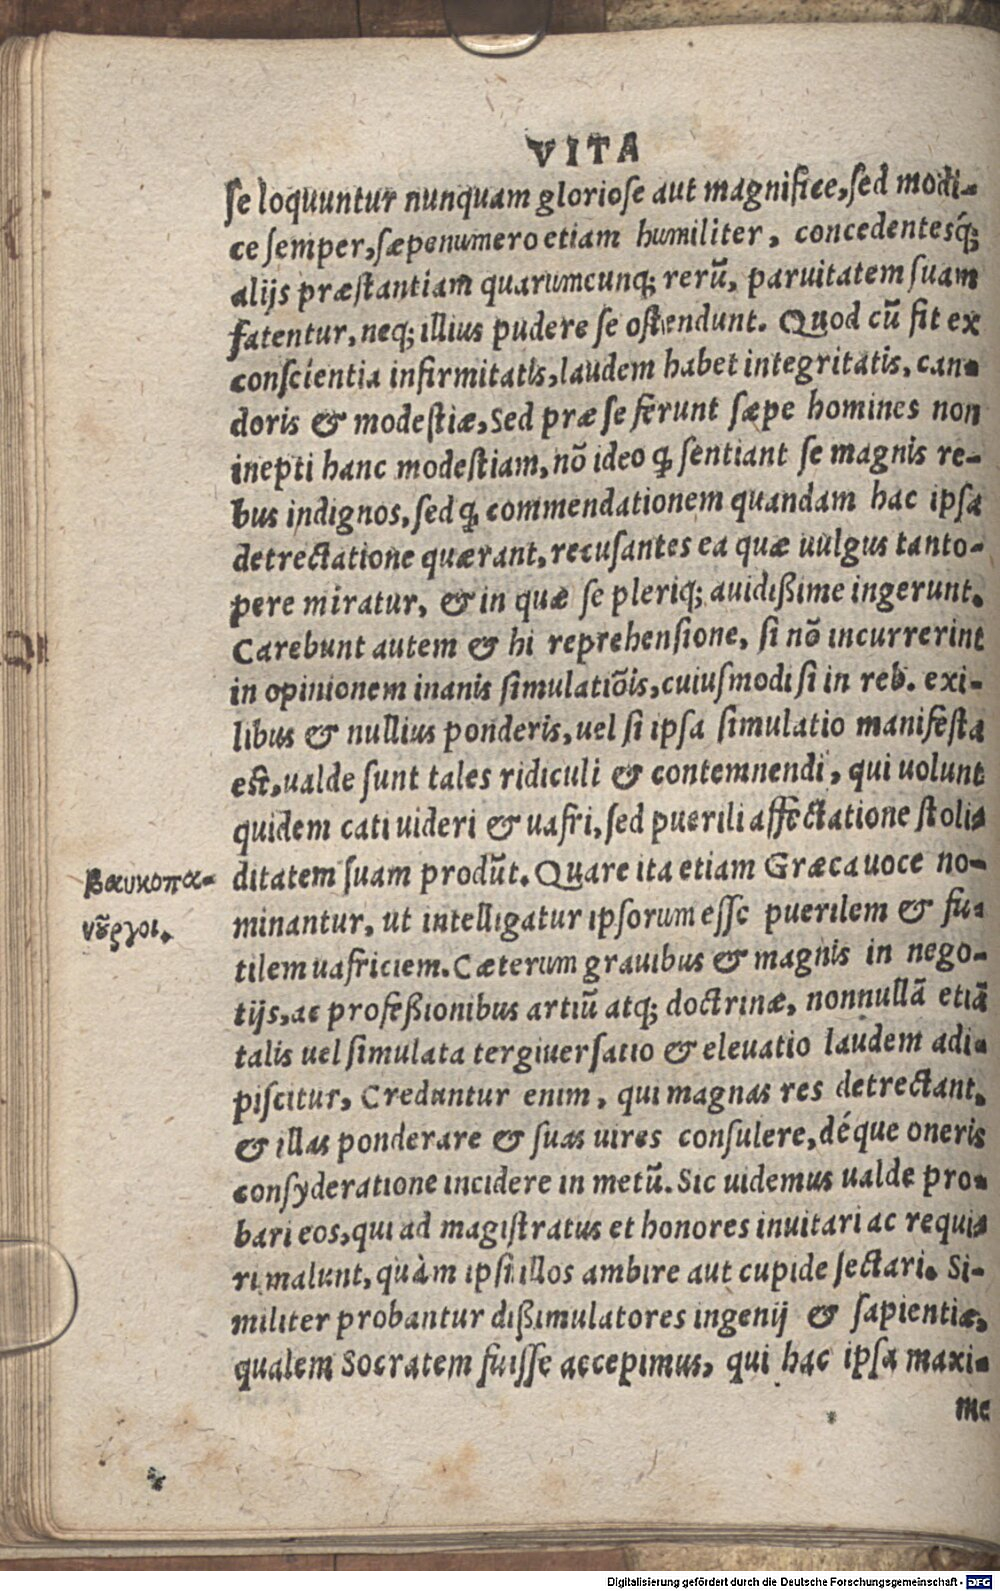 VITA
ſe loquuntur nunquam glorioſe aut magnifice, ſed modi-
ce ſemper, ſæpenumero etiam humiliter, concedentesq́;
alijs præſtantiam quarumcunq; rerũ, paruitatem ſuam
fatentur, neq; illius pudere ſe oſtendunt. Quod cũ fit ex
conſcientia infirmitatis, laudem habet integritatis, can-
doris & modeſtiæ, Sed præ ſe ferunt ſæpe homines non
inepti hanc modeſtiam, nõ ideo ꝙ ſentiant ſe magnis re-
bus indignos, ſed ꝙ commendationem quandam hac ipſa
detrectatione quærant, recuſantes ea quæ uulgus tanto-
pere miratur, & in quæ ſe pleriq; auidißime ingerunt.
Carebunt autem & hi reprehenſione, ſi nõ incurrerint
in opinionem inanis ſimulatiõis, cuiuſmodi ſi in reb. exi-
libus & nullius ponderis, uel ſi ipſa ſimulatio manifeſta
eſt, ualde ſunt tales ridiculi & contemnendi, qui uolunt
quidem cati uideri & uafri, ſed puerili affectatione ſtoli-
βαυκοπα-
ditatem ſuam produ̅t. Quare ita etiam Græca uoce no-
νȣ͂ργοι.
minantur, ut intelligatur ipſorum eſſe puerilem & fu-
tilem uafriciem. Cæterum grauibus & magnis in nego-
tijs, ac profeßionibus artiũ atq; doctrinæ, nonnullã etiã
talis uel ſimulata tergiuerſatio & eleuatio laudem adi-
piſcitur, Creduntur enim, qui magnas res detrectant,
& illas ponderare & ſuas uires conſulere, déque oneris
conſyderatione incidere in metũ. Sic uidemus ualde pro-
bari eos, qui ad magiſtratus et honores inuitari ac requi-
ri malunt, quàm ipſi illos ambire aut cupide ſectari. Si-
militer probantur dißimulatores ingenij & ſapientiæ,
qualem Socratem fuiſſe accepimus, qui hac ipſa maxi-
me
Digitalisierung gefördert durch die Deutsche Forschungsgemeinschaft - DFG